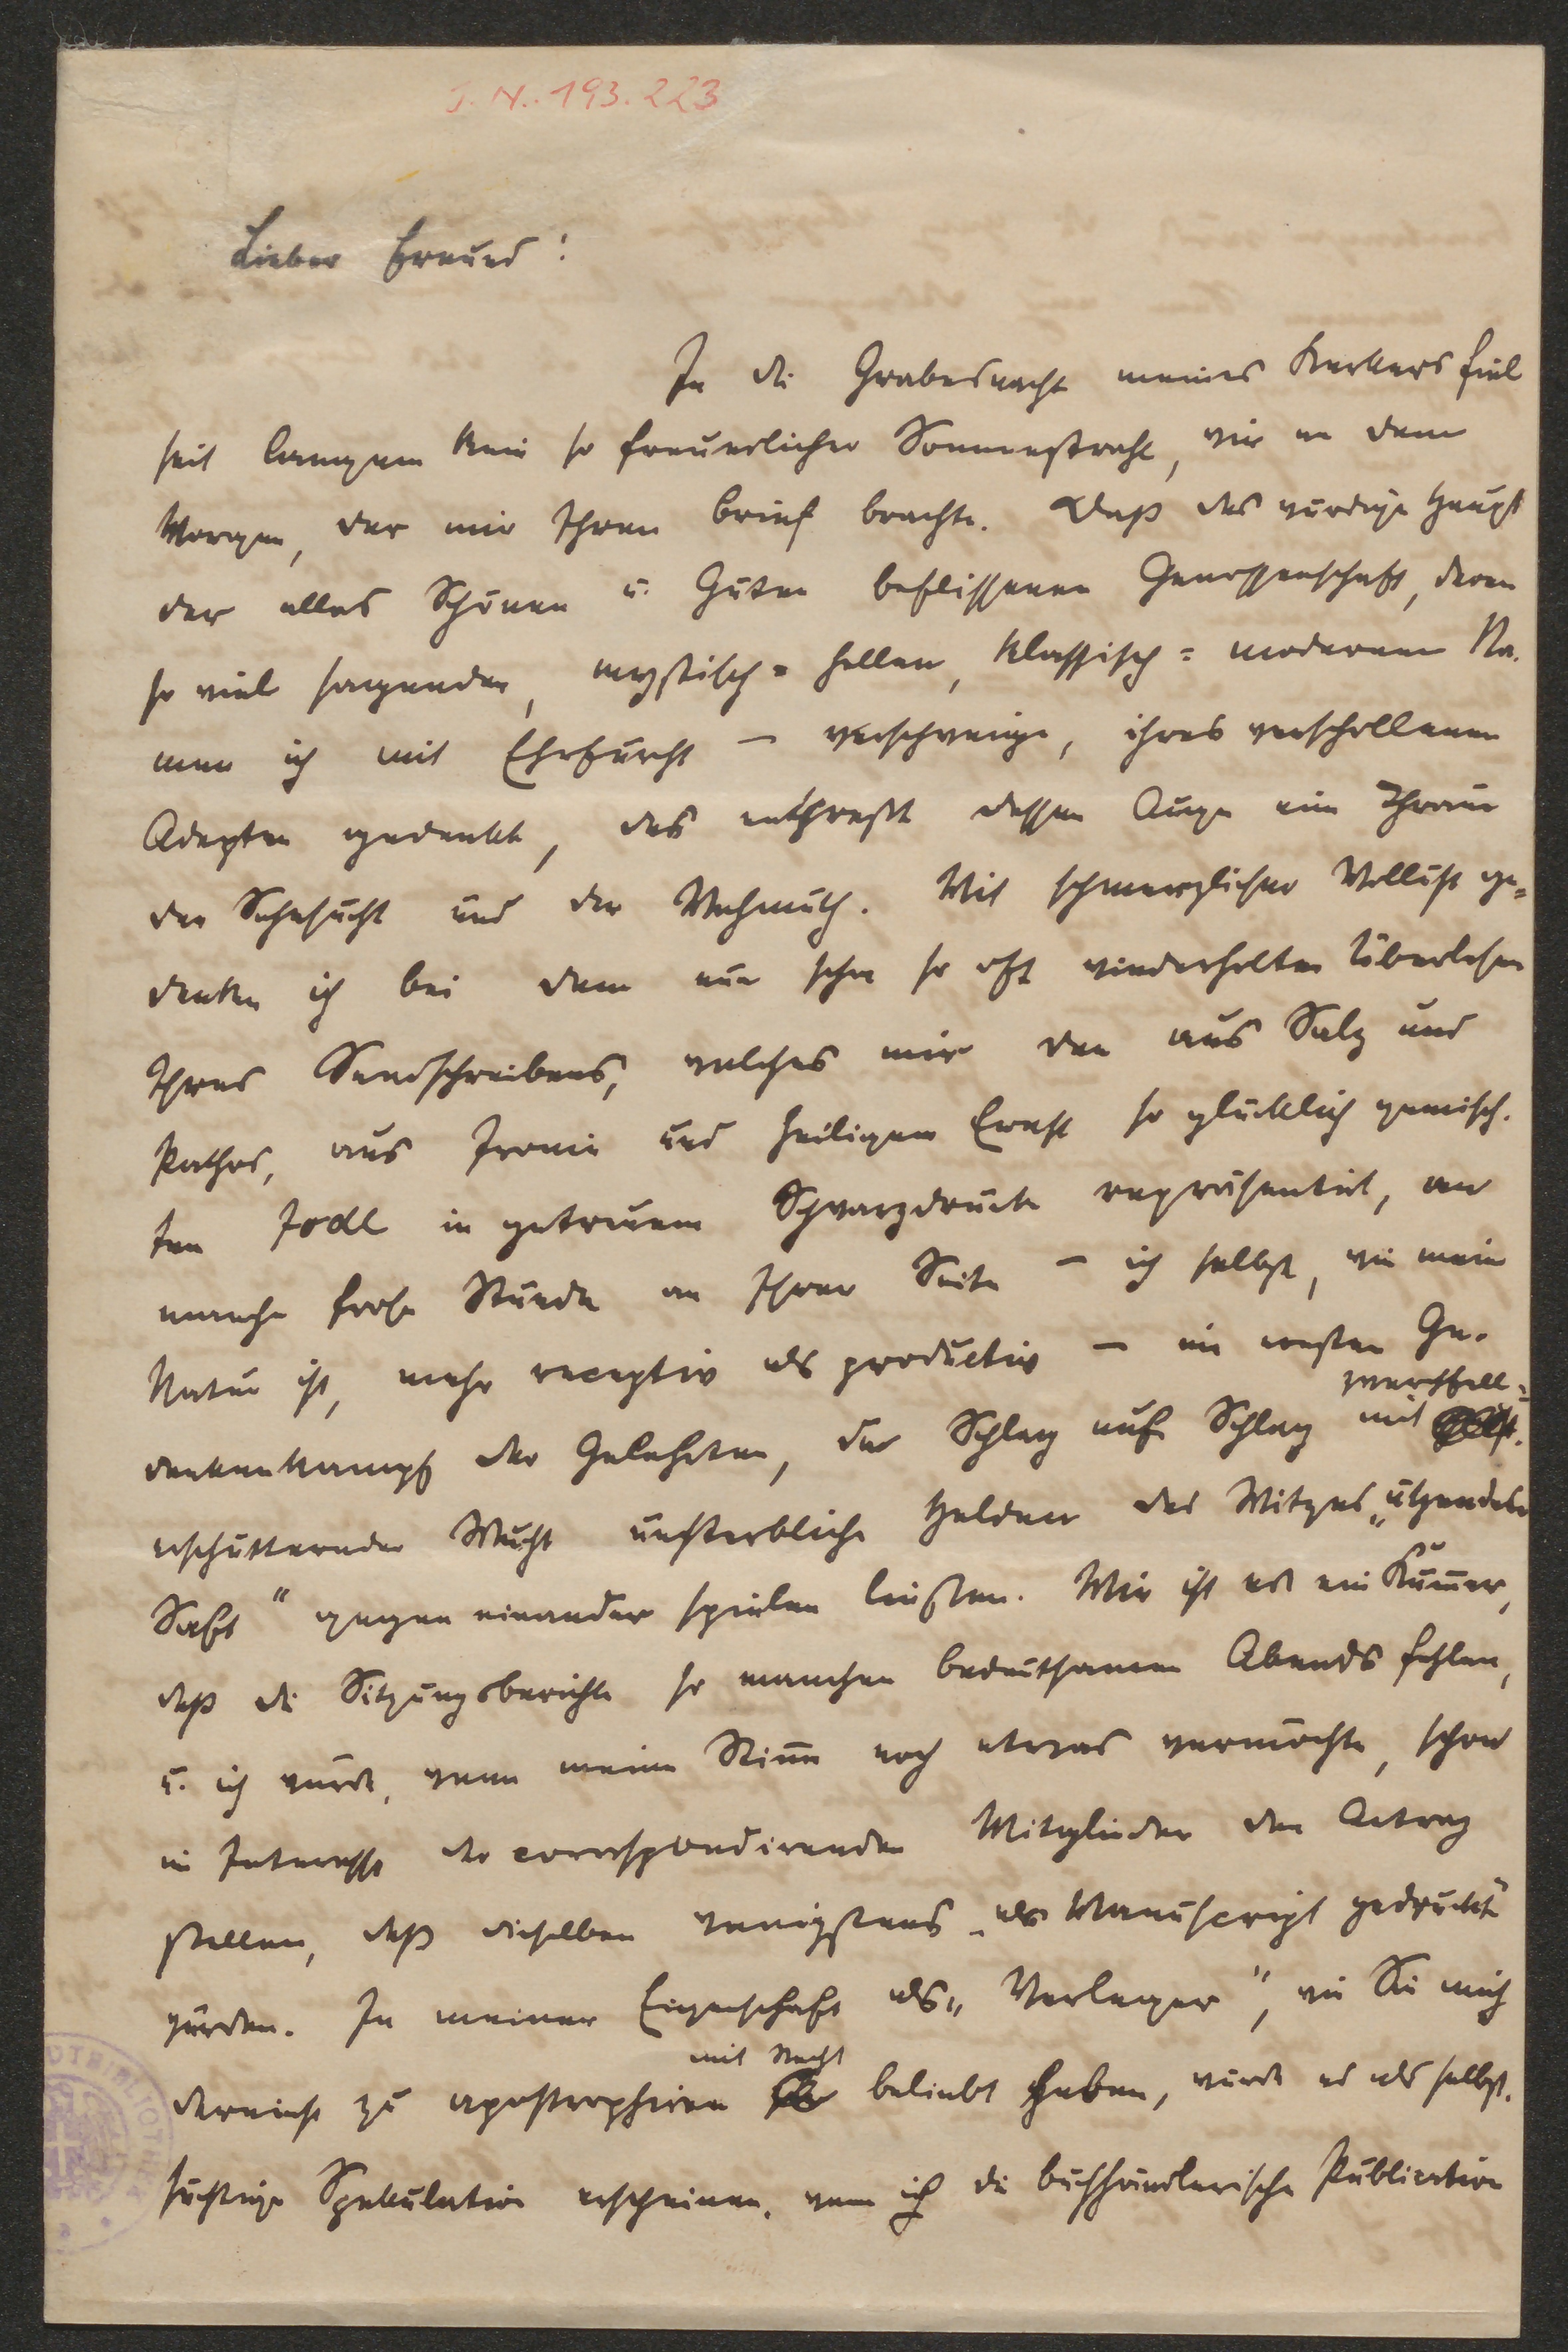 J. N. 193.223
Lieber Freund!
In die Grabesnacht meines Kerkers fiel
seit langem kein so freundlicher Sonnenstrahl, wie an dem
Morgen, der mir Ihren Brief brachte. Daß das würdige Haupt
der alles Schönen u. Guten beflissenen Genossenschaft, deren
so viel sagenden, mystisch=hellen, klassisch=modernen Na-
men ich mit Ehrfurcht – verschweige, ihres verschollenen
Adepten gedenkt, das entpreßt dessen Auge eine Thräne
der Sehnsucht und der Wehmuth. Mit schmerzlicher Wollust ge=
denke ich bei dem nun schon so oft wiederholten Überlesen
Ihres Sendschreibens, welches mir den aus Salz und
Pathos, aus Ironie und heiligem Ernst so glücklich gemisch-
ten Jodl in getreuem Schwarzdrucke repräsentirt, an
manche frohe Stunde an Ihrer Seite – ich selbst, wie mein
Natur ist, mehr receptiv als productiv – im ernsten Ge-
dankenkampf der Gelehrten, der Schlag auf Schlag mit zwerchfell=
erschütternder Wucht unsterbliche Helden des Witzes „ätzenden
Saft" gegen einander spielen ließen. Mir ist es ein Kummer,
daß die Sitzungsberichte so manchen bedeutsamen Abends fehlen,
u. ich würde, wenn meine Stimme noch etwas vermöchte, schon
im Interesse der correspondirenden Mitglieder den Antrag
stellen, daß dieselben wenigstens „als Manuscript gedruckt"
würden. In meiner Eigenschaft als „Verleger", wie Sie mich
dereinst zu apostrophiren mit Recht beliebt haben, würde es als selbst-
süchtige Spekulation erscheinen, wenn ich die buchhändlerische Publication